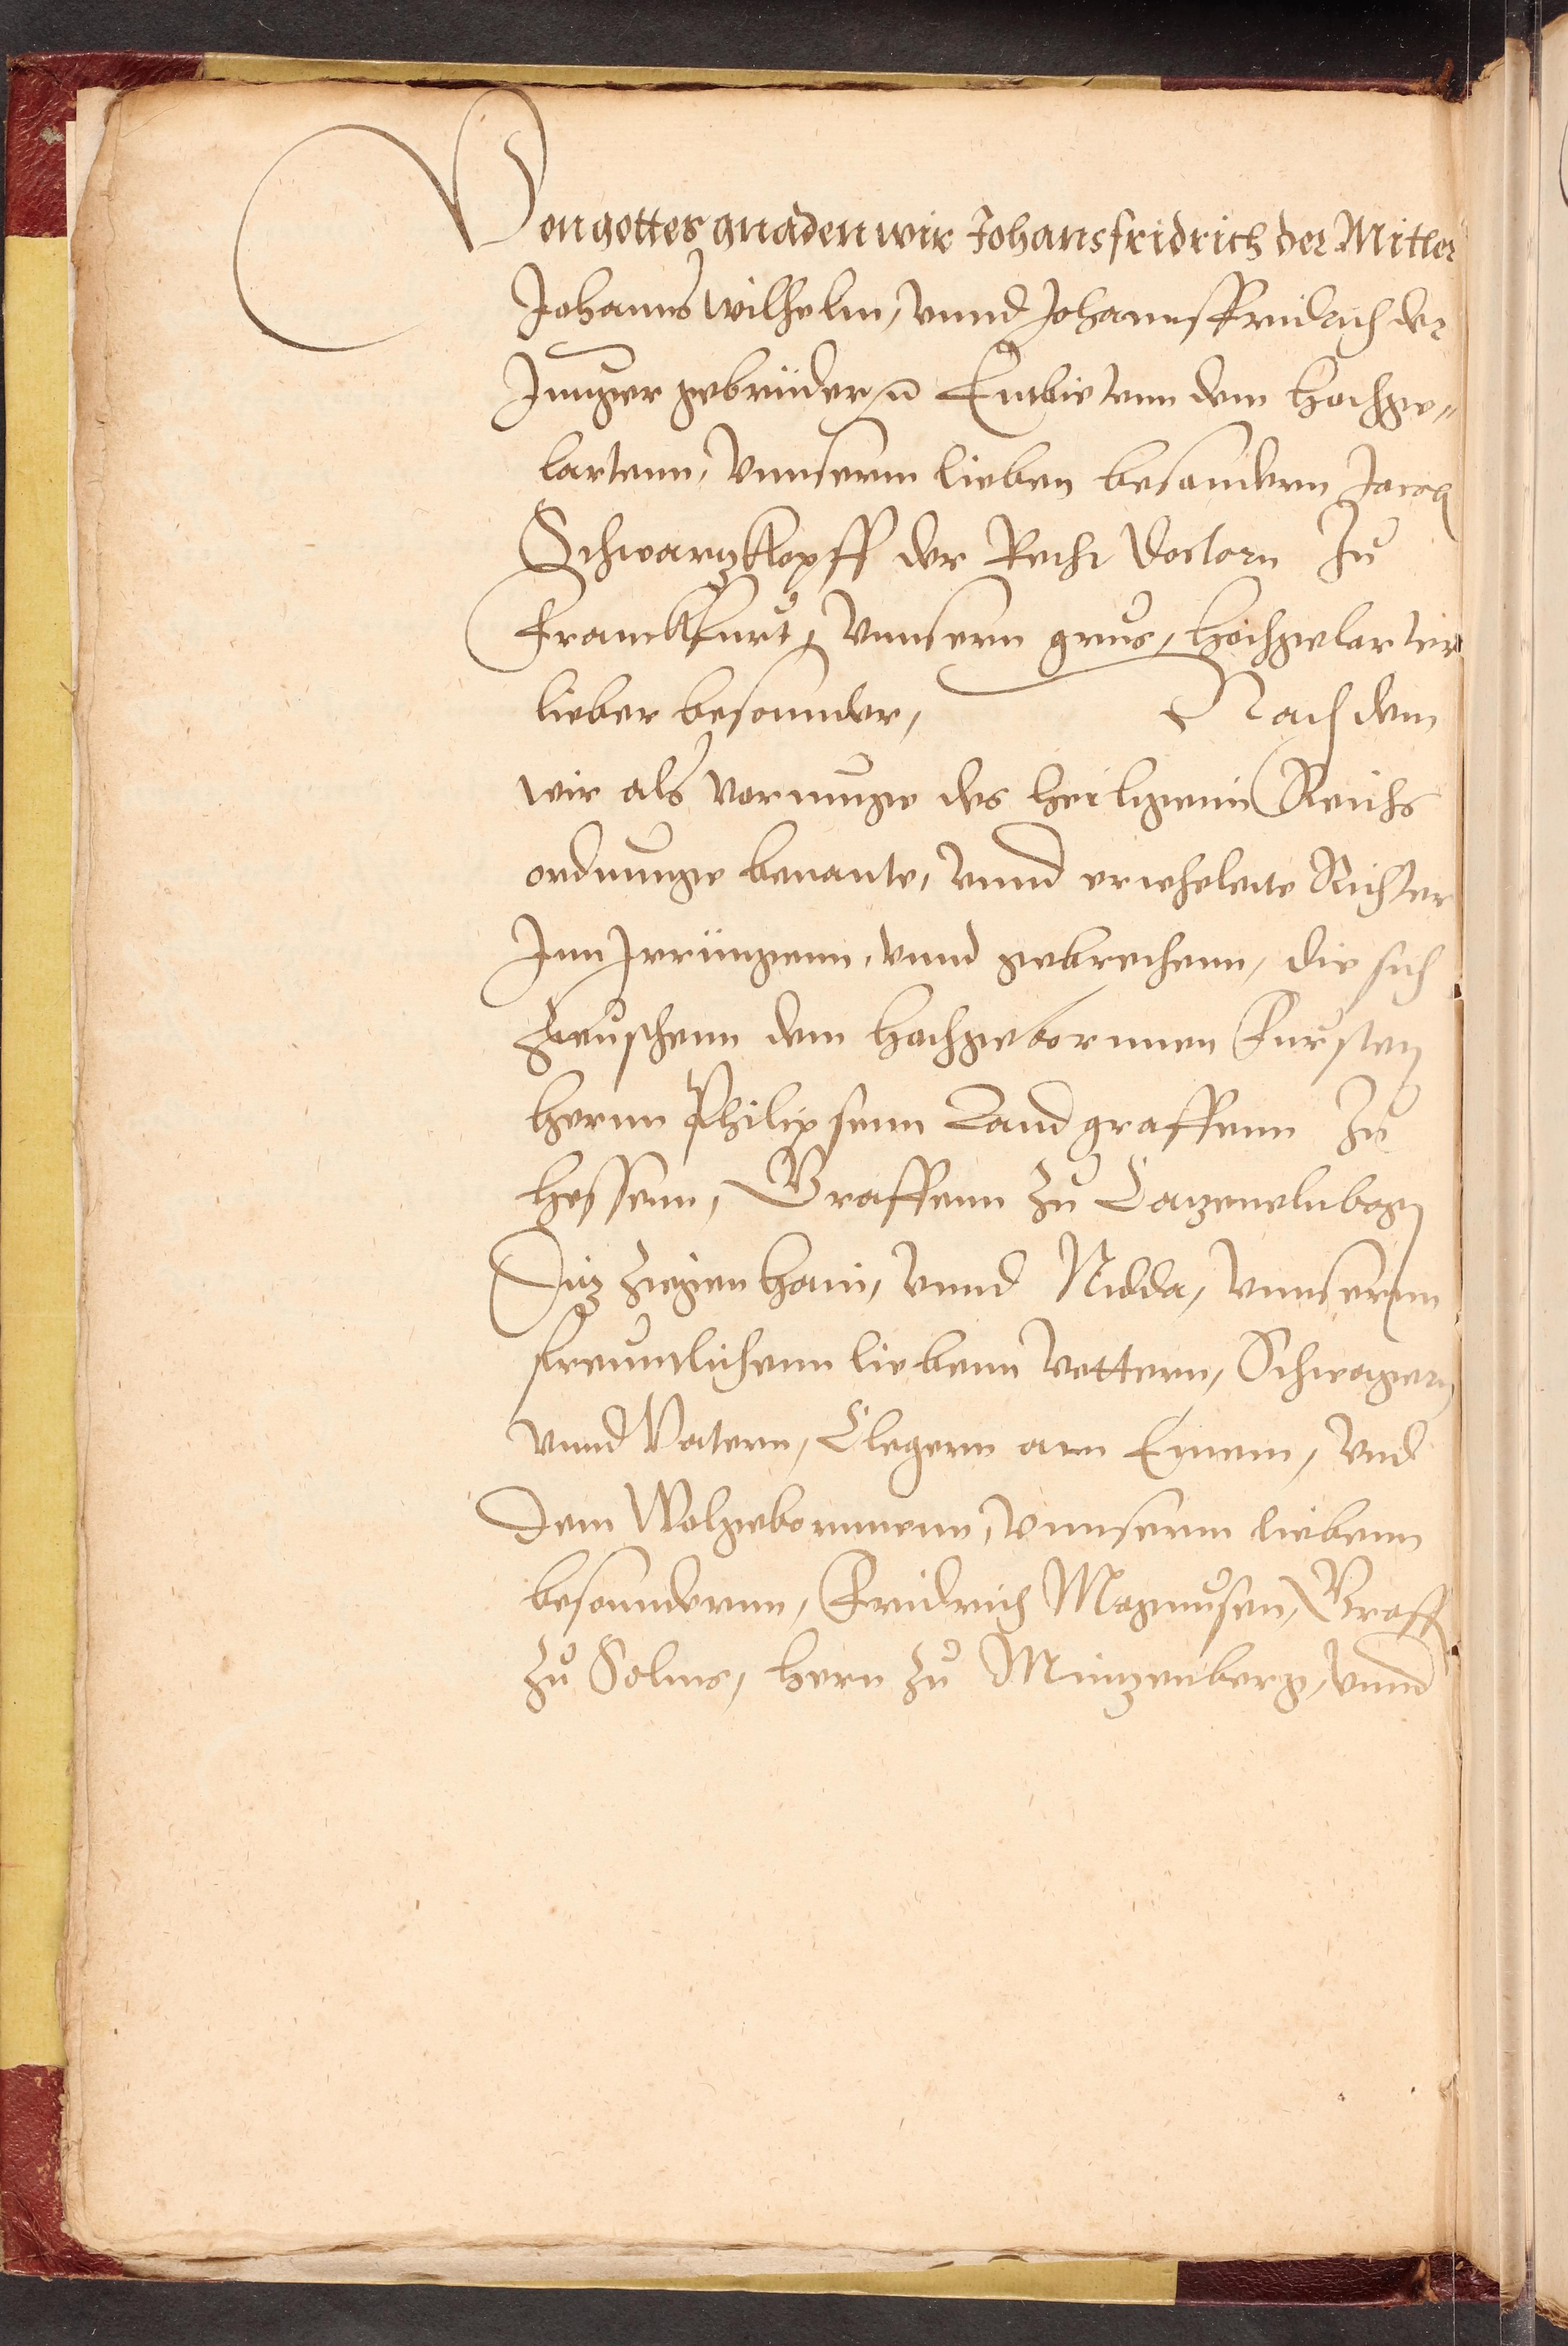 Von gottes gnaden wir Johansfridrich der Mitler
Johanns Wilhelm, vnnd Johannsffridrich der
Junger gebrüder, Embietenn dem hochge„
lartenn, vnnserm lieben besondern Jacob
Schwartzkopff der Recht Doctorn zu
Franckfurt, vnnsern grus, hochgelarter
lieber besonnder, Nach dem
wir als vormuge des heiligenn Reichs
ordnunge benante, vnnd erwehelete Richter
Inn Irrüngenn, vnnd gebrechenn, die sich
zwuschenn dem hochgebornnen Fursten
hernn Philipsenn Landgraffenn zu
hessenn, Graffenn zu Catzenelnbogen
Ditz Ziegenhain, vnnd Nidda, vnnsernn
freuntlichenn liebenn vettern, Schwagern
vnnd Vatern, Clegern am Einem, vnd
dem Wolgebornnenn, vnnserm liebenn
besonndernn, Fridrich Magnusen, Graff
zu Solms, hern zu Mintzenberg, vnnd